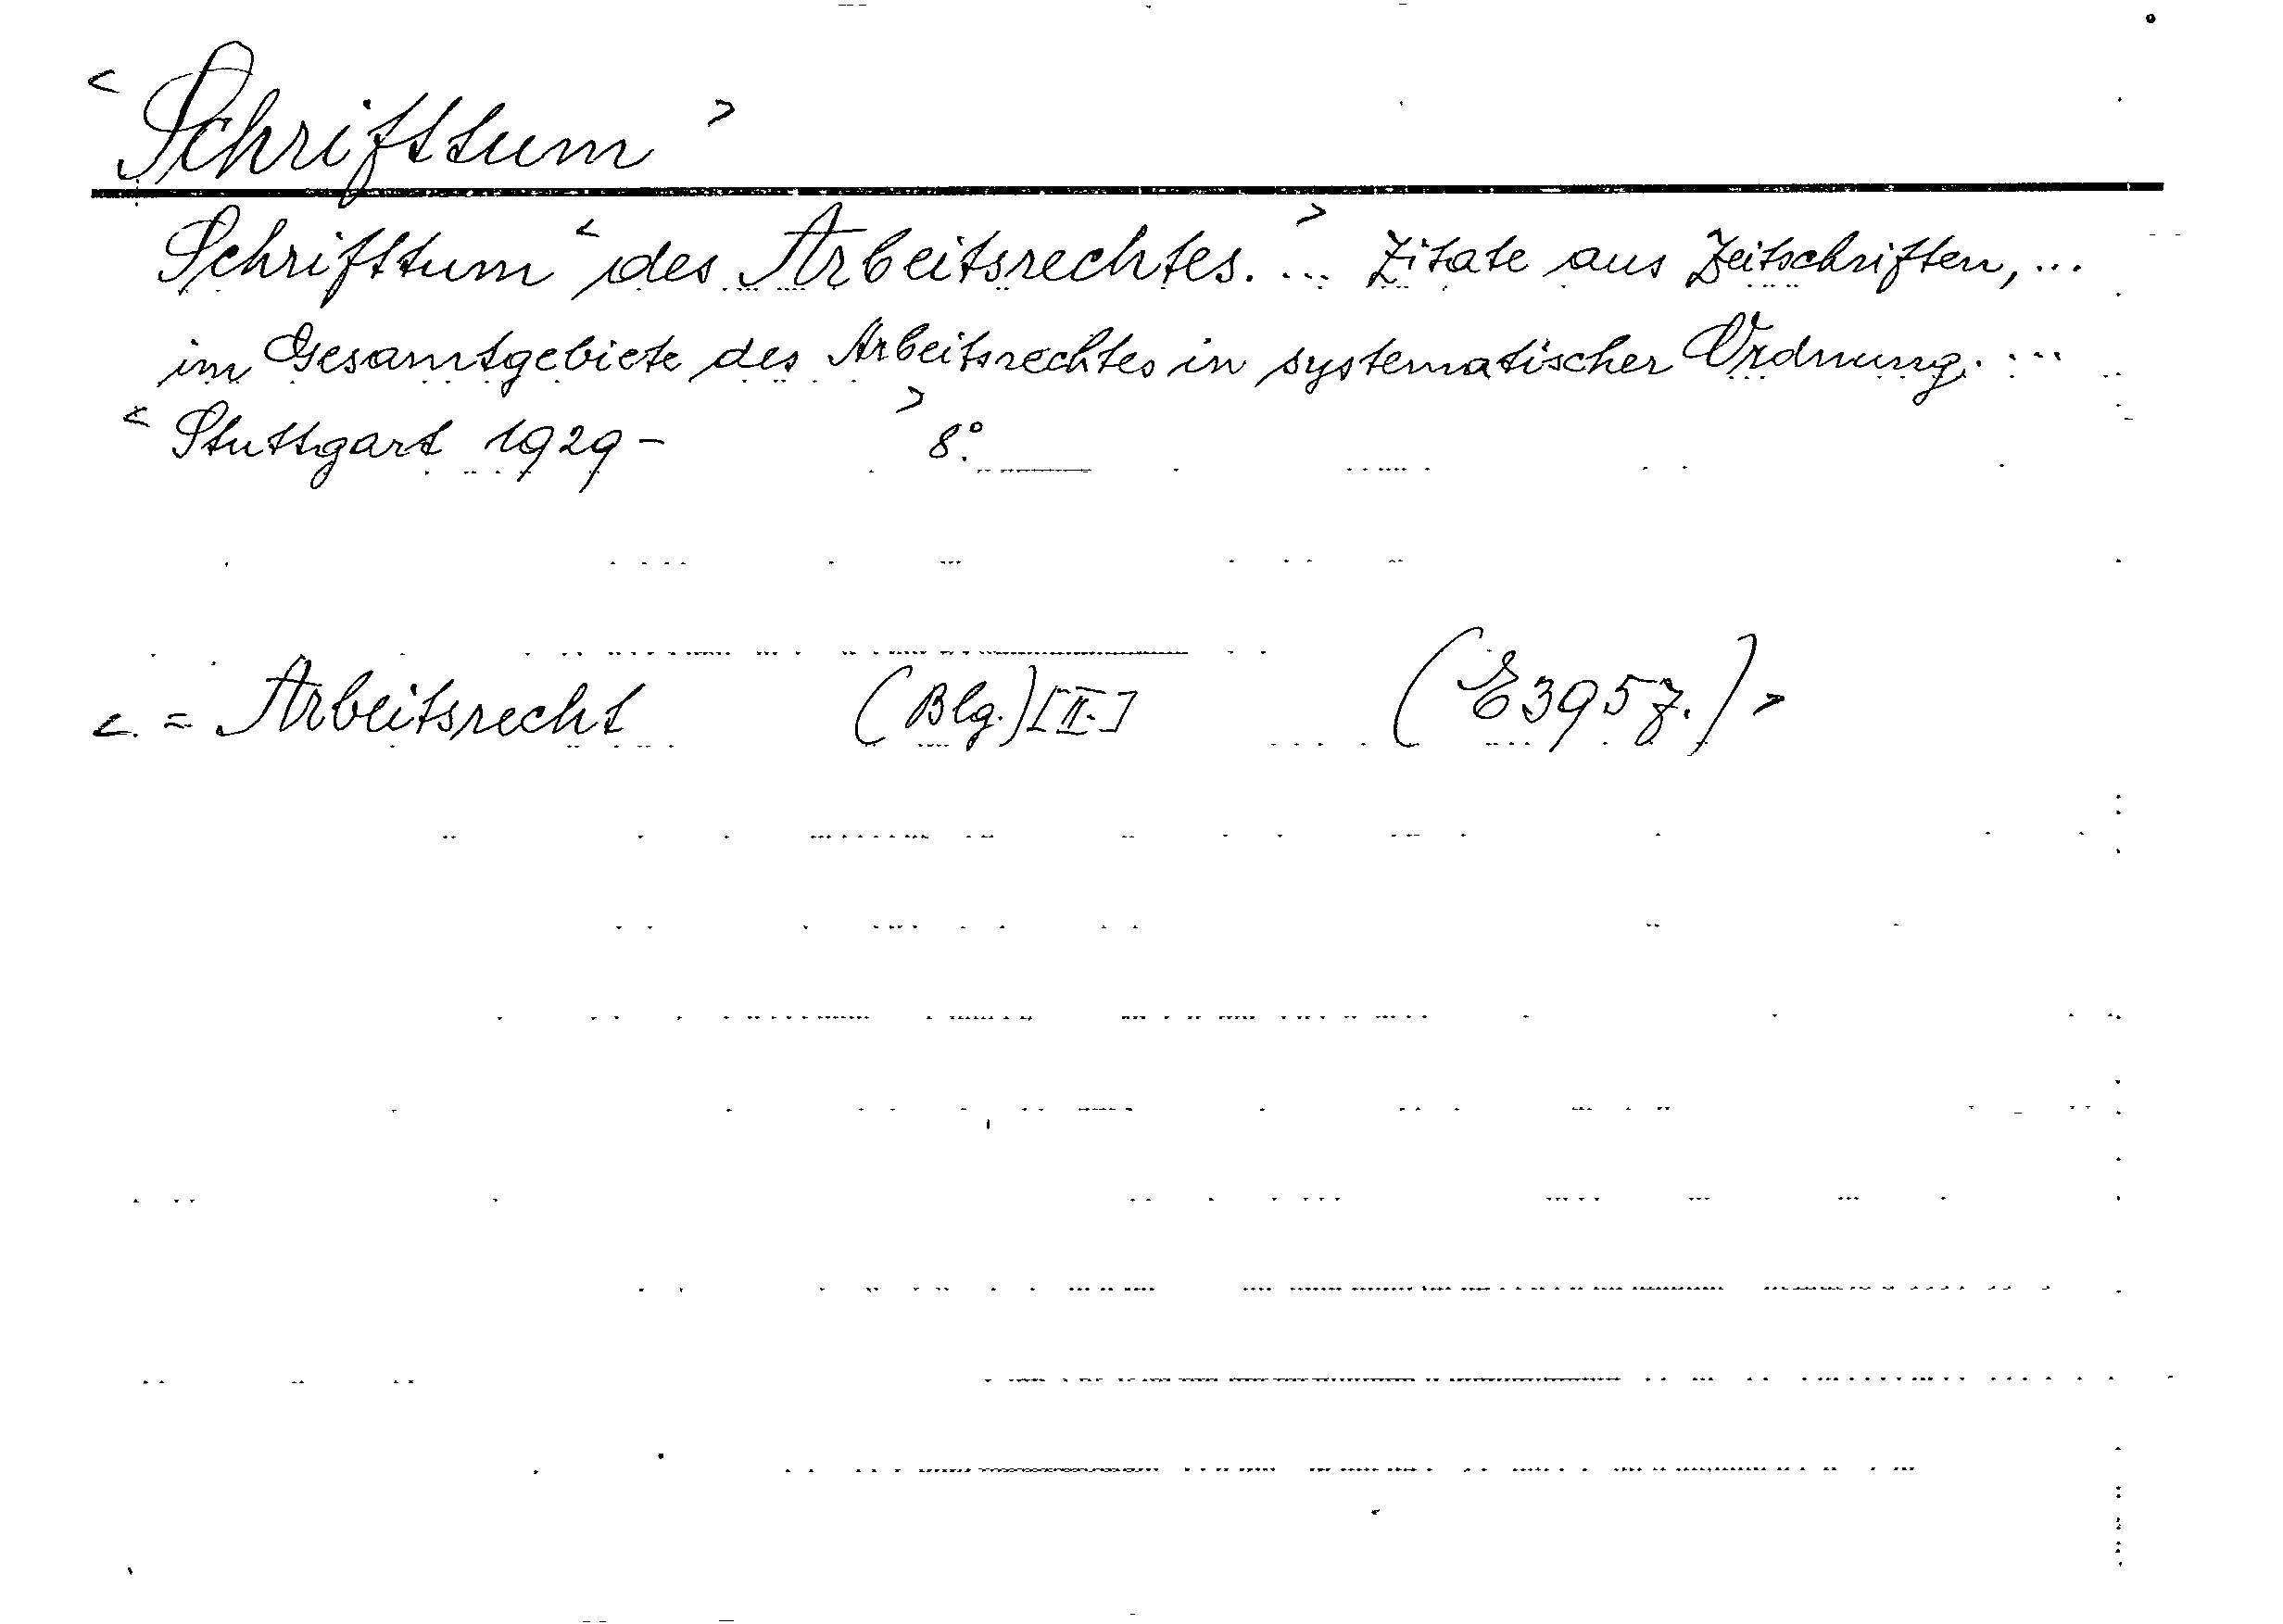 < Schrifttum >
Schrifttum < des Arbeitsrechtes. > ... Zitate aus Zeitschriften, ...
im Gesamtgebiete des Arbeitsrechtes in systematischer Ordnung. ...
< Stuttgart 1929 - > 8°.
< = Arbeitsrecht (Blg.) [II.] (E395z.) >